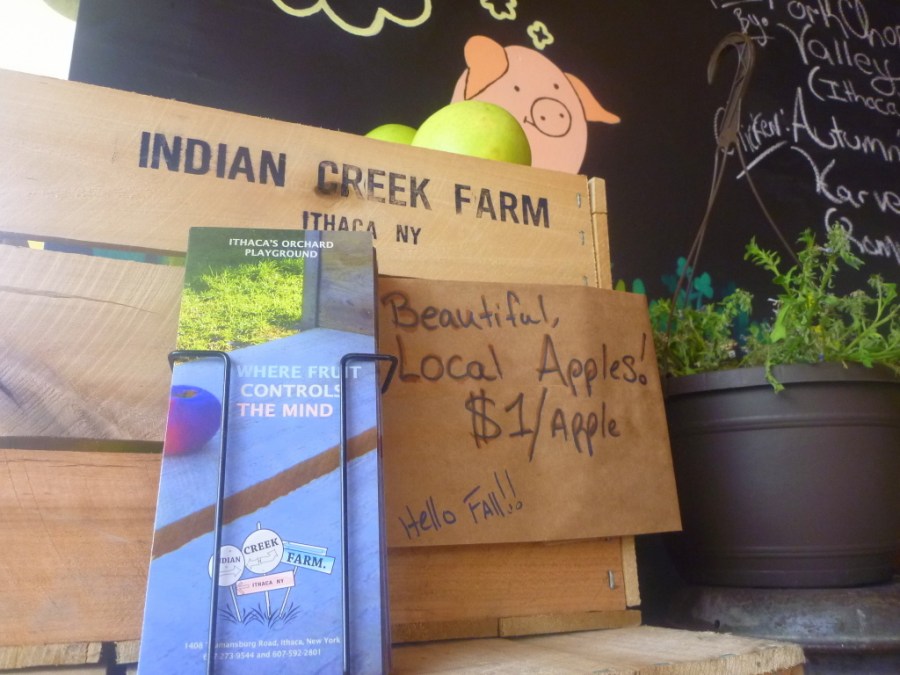 INDIAN CREEK FARM
ITHACA NY
ITHACA'S ORCHARD
PLAYGROUND
WHERE FRUIT
CONTROLS
THE MIND
INDIAN
CREEK
FARM.
ITHACA NY
Road, Ithaca, New York
and 607-592-2801
Beautiful,
Local Apples!
$1/Apple
Hello Fall!!
By:
Valley
(Ithaca
Chicken: Autumn